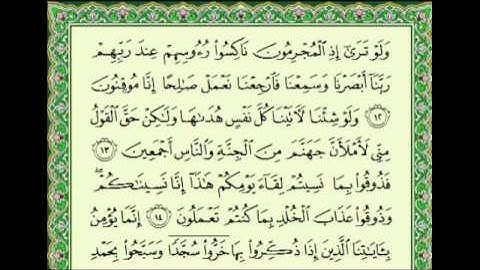 وَلَوْ تَرَىٰٓ إِذِ ٱلْمُجْرِمُونَ نَاكِسُوا۟ رُءُوسِهِمْ عِندَ رَبِّهِمْ
رَبَّنَآ أَبْصَرْنَا وَسَمِعْنَا فَٱرْجِعْنَا نَعْمَلْ صَٰلِحًا إِنَّا مُوقِنُونَ
١٢ وَلَوْ شِئْنَا لَءَاتَيْنَا كُلَّ نَفْسٍ هُدَىٰهَا وَلَٰكِنْ حَقَّ ٱلْقَوْلُ
مِنِّى لَأَمْلَأَنَّ جَهَنَّمَ مِنَ ٱلْجِنَّةِ وَٱلنَّاسِ أَجْمَعِينَ ١٣
فَذُوقُوا۟ بِمَا نَسِيتُمْ لِقَآءَ يَوْمِكُمْ هَٰذَآ إِنَّا نَسِينَٰكُمْ ۖ
وَذُوقُوا۟ عَذَابَ ٱلْخُلْدِ بِمَا كُنتُمْ تَعْمَلُونَ ١٤ إِنَّمَا يُؤْمِنُ
بِـَٔايَٰتِنَا ٱلَّذِينَ إِذَا ذُكِّرُوا۟ بِهَا خَرُّوا۟ سُجَّدًا وَسَبَّحُوا۟ بِحَمْدِ